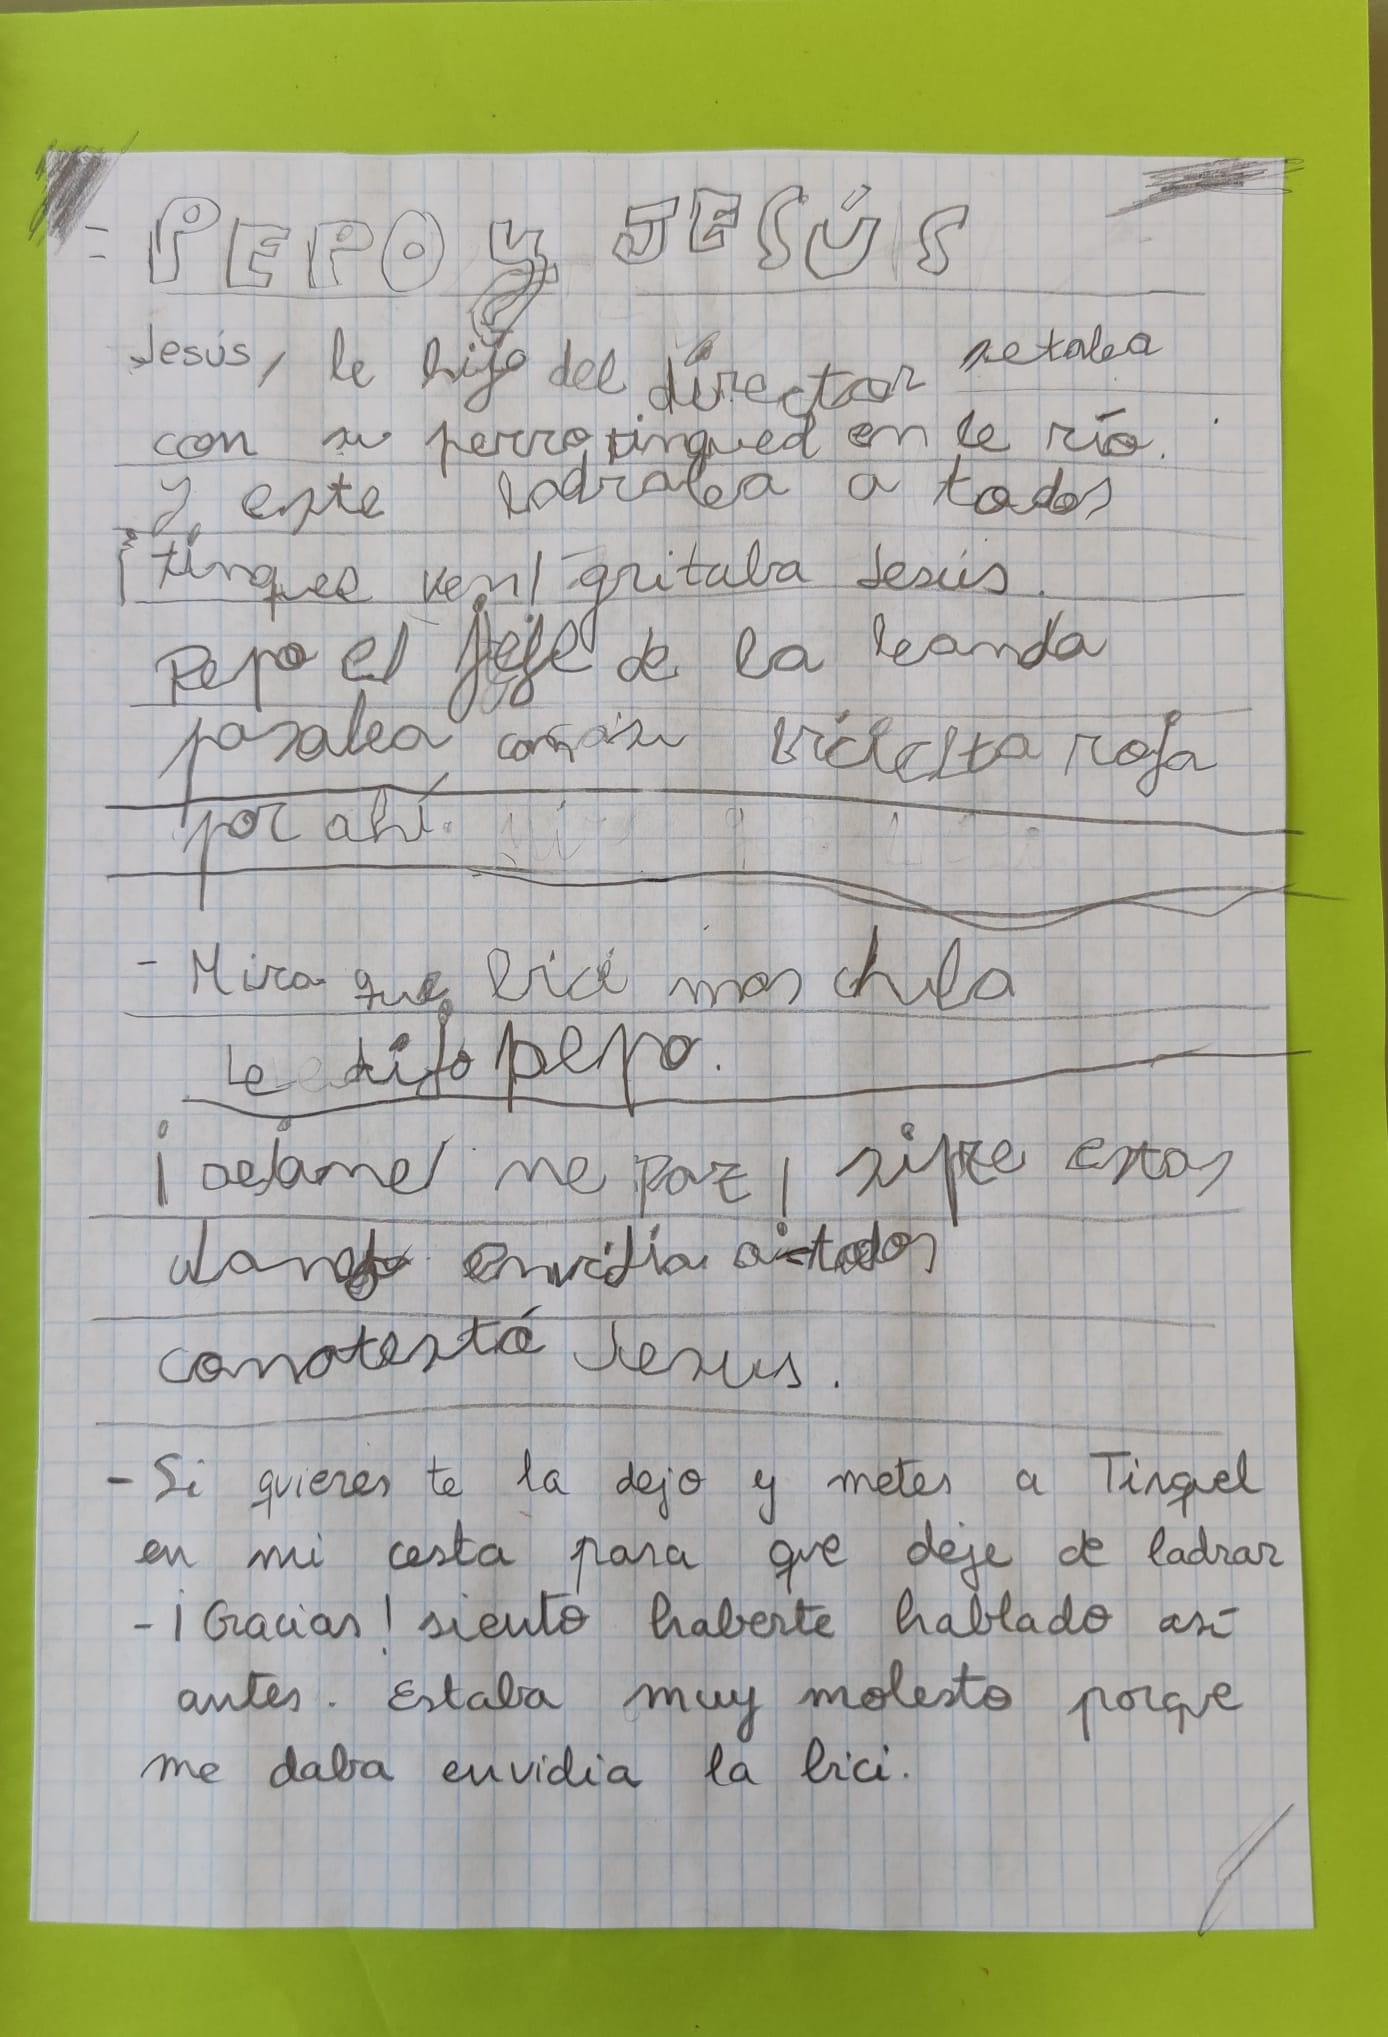 = PEPO Y JESÚS
Jesús, le hijo del director estaba
con su perro tinqued en le río.
y este ladraba a todos
¡tinquee ven! gritaba Jesús.
Pepo el jefe de la banda
pasaba con su bicicleta roja
por ahí.
- Mira que bici mas chula
Le dijo pepo.
¡dejame ne paz! sipre estas
dando envidia a todos
conotestó Jesus.
- Si quieres te la dejo y metes a Tinquel
en mi cesta para que deje de ladrar
- ¡Gracias! siento haberte hablado así
antes. Estaba muy molesto porque
me daba envidia la bici.